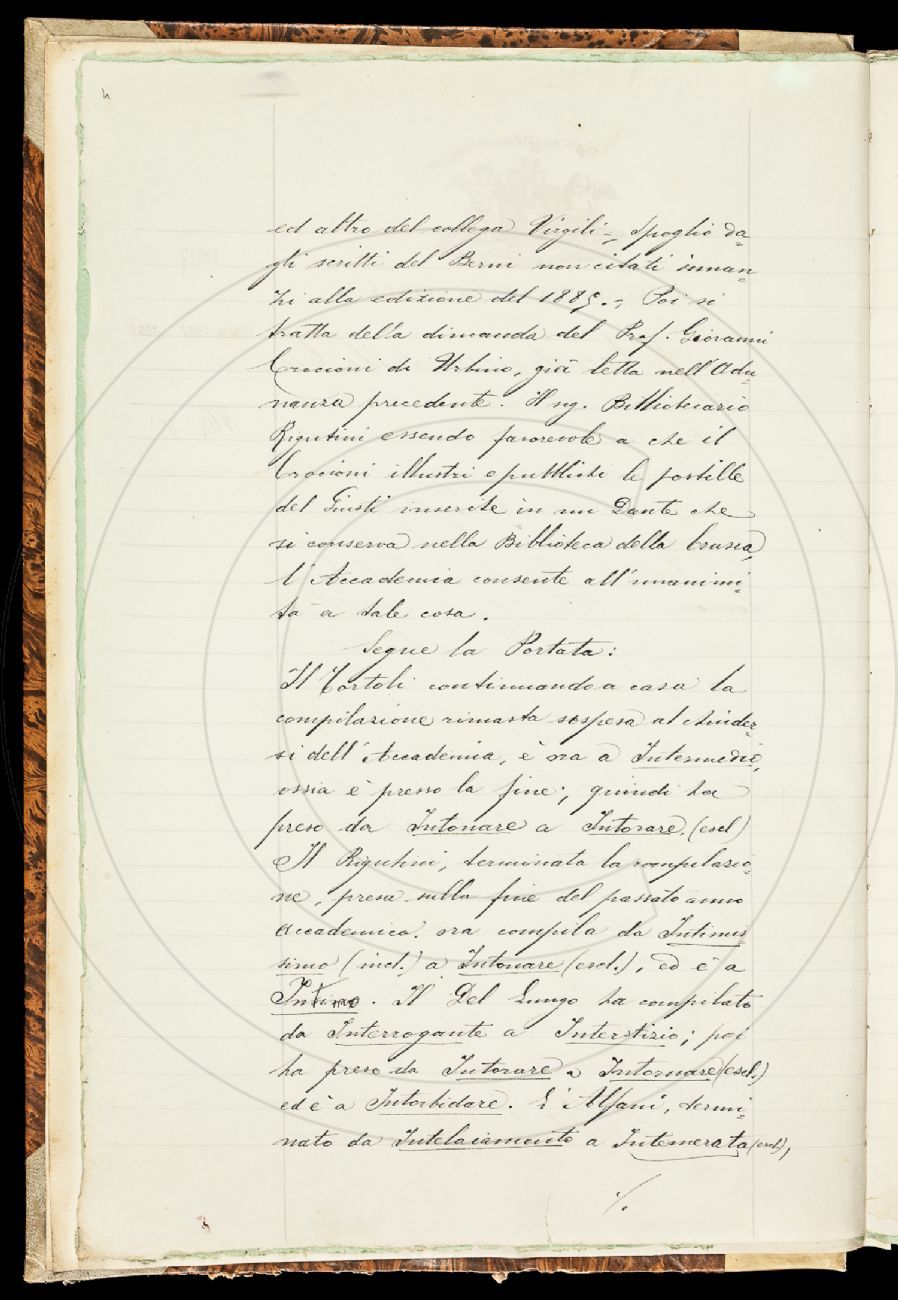 ed altro del collega Virgili -, Spoglio da=
gli scritti del Berni non citati innan=
zi alla edizione del 1885. -, Poi si
tratta della dimanda del Prof. Giovanni
Crocioni di Urbino, già letta nell'Adu=
nanza precedente. Il sig. Bibliotecario
Rigutini essendo favorevole a che il
Crocioni illustri e pubblichi le postille
del Giusti inserite in un Dante che
si conserva nella Biblioteca della Crusca,
l'Accademia consente all'unanimi=
tà a tale cosa.
Segue la Portata:
Il Tortoli continuando a casa la
compilazione rimasta sospesa al chiuder=
si dell'Accademia, è ora a Intermedio,
ossia è presso la fine; quindi ha
preso da Intonare a Intorare. (escl)
Il Rigutini, terminata la compilazio=
ne, presa sulla fine del passato anno
accademico, ora compila da Intimis
simo (incl.) a Intonare (escl.), ed è a
Intimo. Il Del Lungo ha compilato
da Interrogante a Interstizio; poi
ha preso da Intorare a Intornare (escl.)
ed è a Intorbidare. L'Alfani, termi=
nato da Intelaiamento a Intemerata (escl),
./.